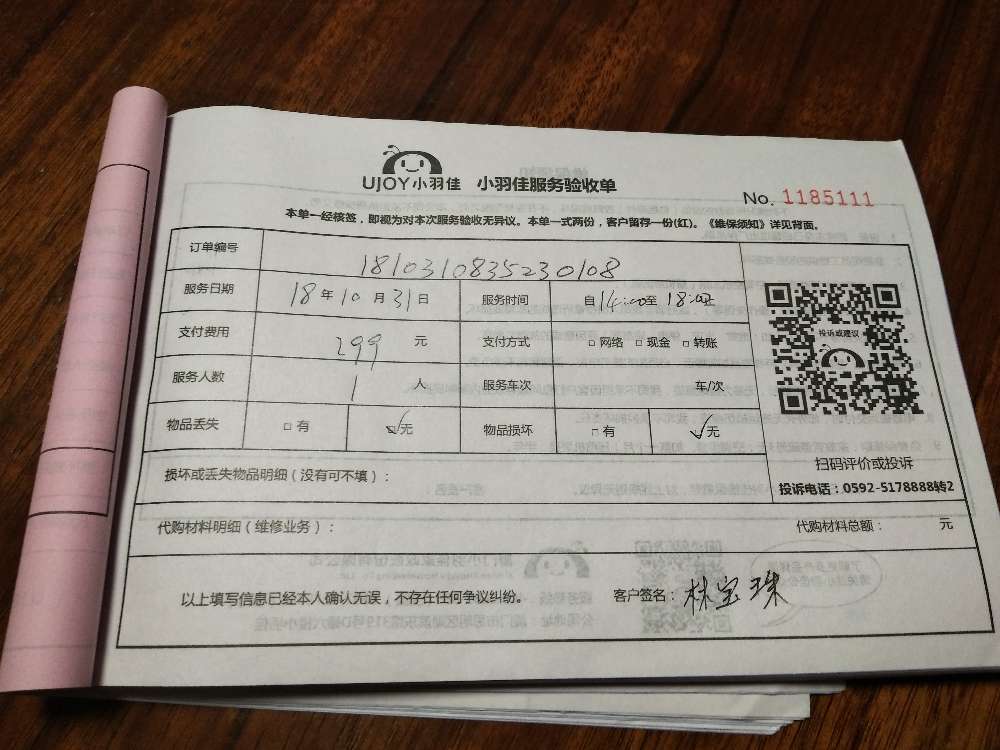 UJOY小羽佳 小羽佳服务验收单
No. 1185111
本单一经核签，即视为对本次服务验收无异议。本单一式两份，客户留存一份(红)。《维保须知》详见背面。
订单编号 1810310835230108
服务日期 18年10月31日 服务时间 自14:00至18:00止
支付费用 299 元 支付方式 □网络 □现金 □转账
服务人数 1 人 服务车次 车/次
物品丢失 □有 ☑无 物品损坏 □有 ☑无
投诉或建议
扫码评价或投诉
投诉电话：0592-5178888转2
损坏或丢失物品明细（没有可不填）：
代购材料明细（维修业务）： 代购材料总额： 元
以上填写信息已经本人确认无误，不存在任何争议纠纷。 客户签名：林宝珠